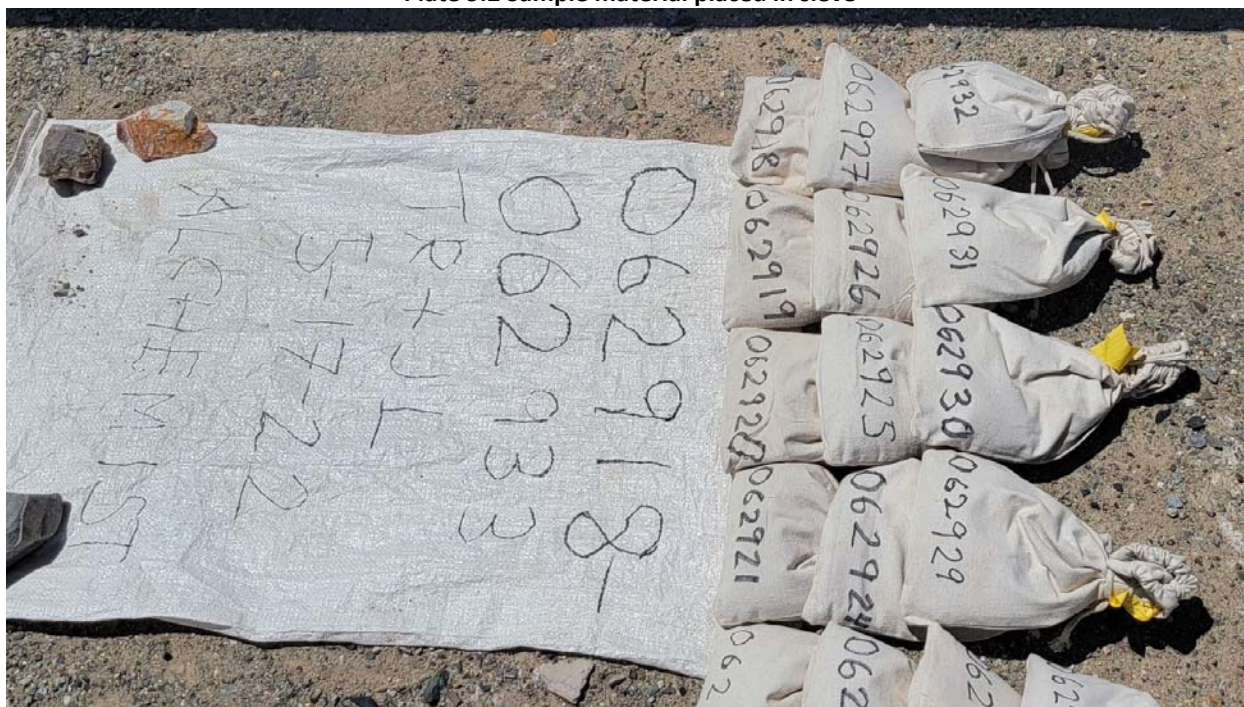 Sample material placed in sieve
062918-
062933
TR + JL
5-17-22
ALCHEMIST
062918
062927
2932
062919
062926
062931
062920
062925
062930
062921
062924
062929
062
062
062
062